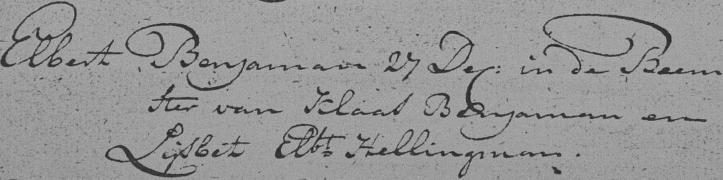 Elbert Benjaman 27 Dec: in de Beem
ster van Klaas Benjaman en
Lijsbet Elbts Hellingman.